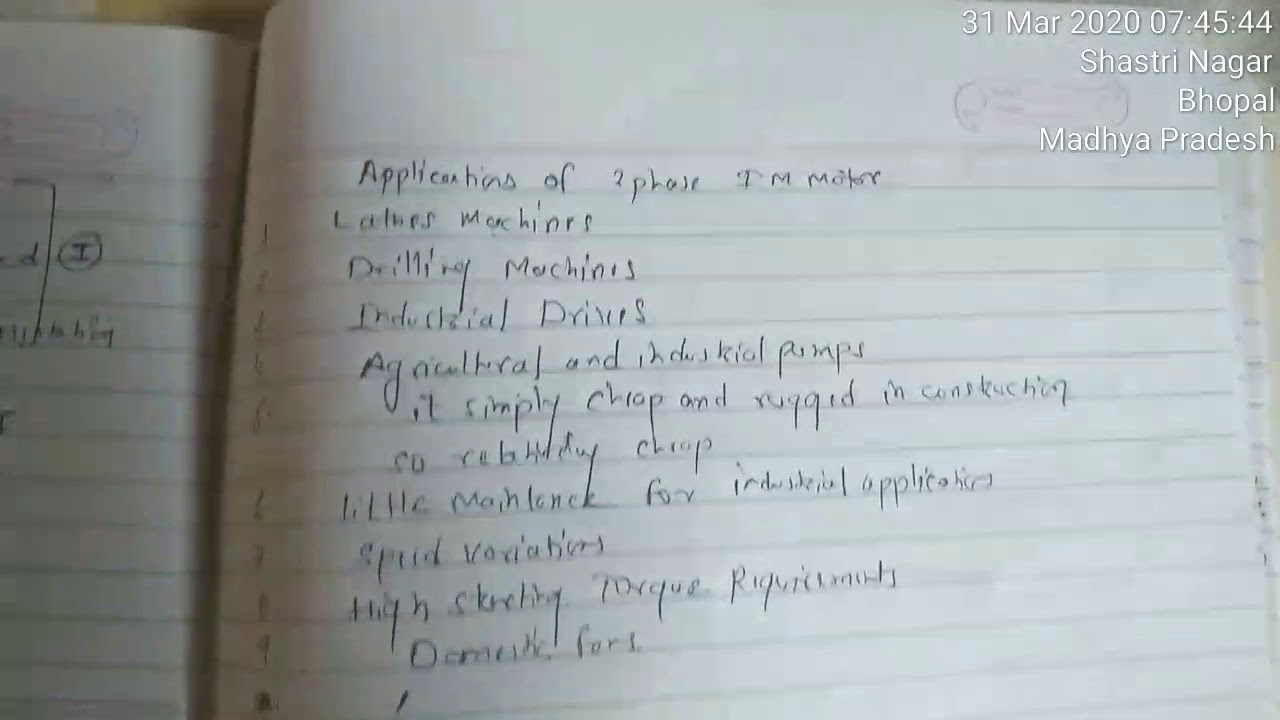 31 Mar 2020 07:45:44
Shastri Nagar
Bhopal
Madhya Pradesh
Applications of phase I M Motor
1 Lathes Machines
Drilling Machines
Industrial Drives
Agricultural and industrial pumps
it simply cheap and rugged in construction
so cheap
little for industrial applications
Speed variations
High starting Torque Requirements
9 Domestic fans
I